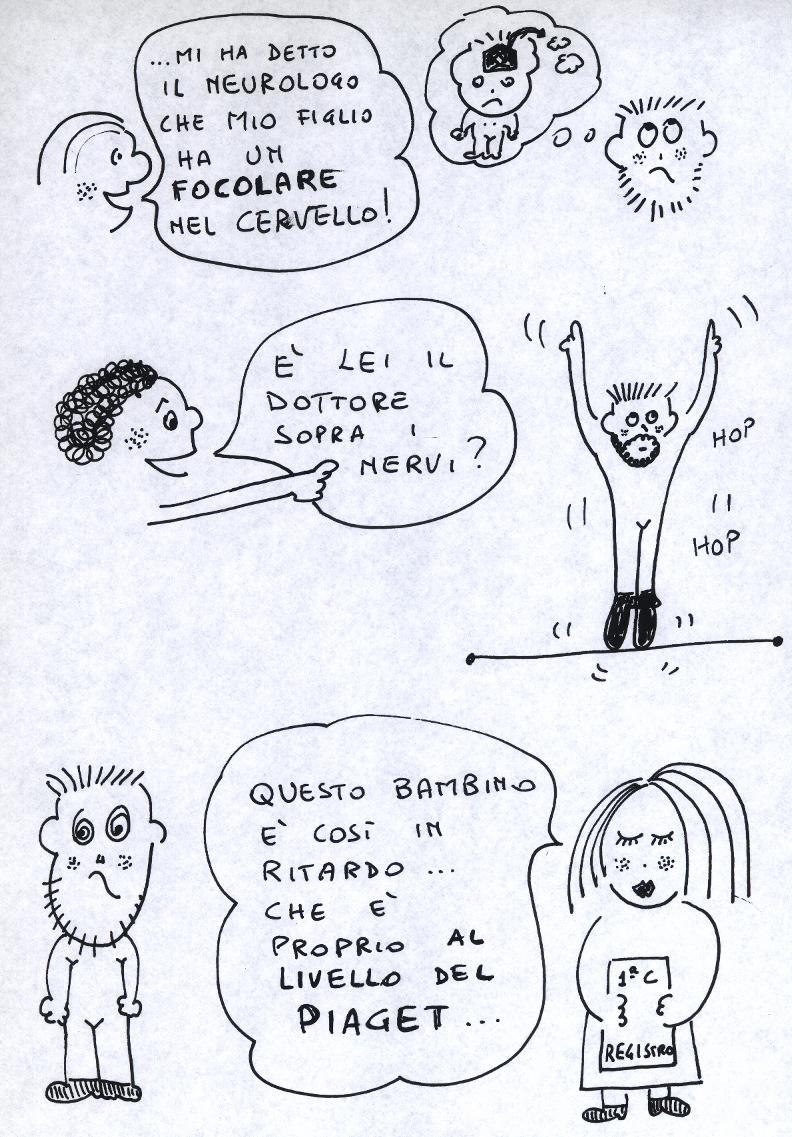 ...MI HA DETTO
IL NEUROLOGO
CHE MIO FIGLIO
HA UN
FOCOLARE
NEL CERVELLO!
E' LEI IL
DOTTORE
SOPRA I
NERVI?
HOP
HOP
QUESTO BAMBINO
E' COSÌ IN
RITARDO...
CHE E'
PROPRIO AL
LIVELLO DEL
PIAGET...
1ª C
REGISTRO